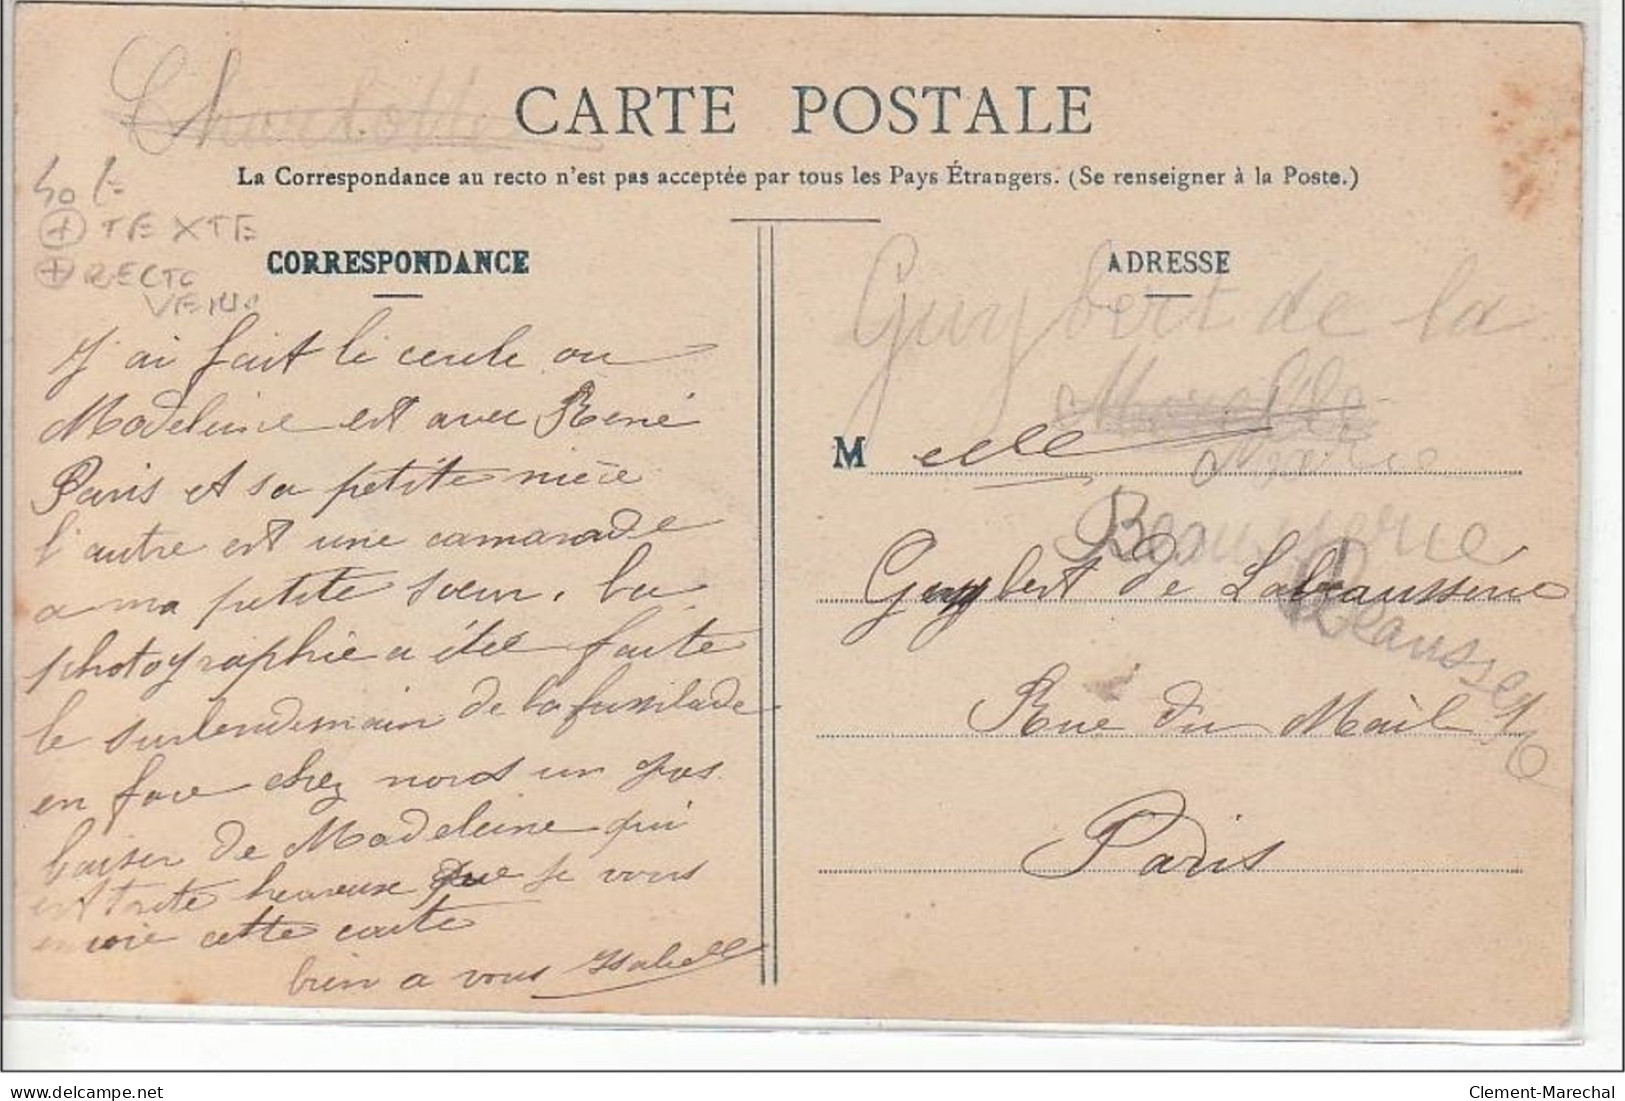 Charlotte
CARTE POSTALE
La Correspondance au recto n'est pas acceptée par tous les Pays Étrangers. (Se renseigner à la Poste.)
+ TEXTE
+ RECTO
VERSO
CORRESPONDANCE
J'ai fait le cercle ou
Madeleine est avec René
Paris et sa petite nièce
l'autre est une camarade
a ma petite soeur. la
photographie a été faite
le surlendemain de la fussilade
en face chez nous un gros
baiser de Madeleine qui
est toute heureuse que je vous
envoie cette carte
bien a vous Isabelle
ADRESSE
Guybert de la
M elle
Guybert de Labeausserie
Rue du Mail 16
Paris
Clement-Marechal
www.delcampe.net